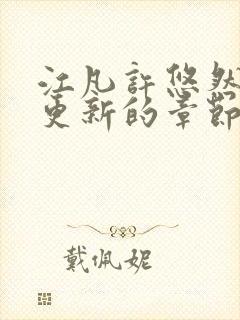 江凡許悠然
更新的章節
戴佩妮